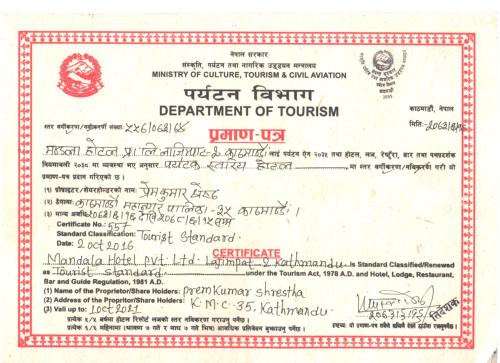 नेपाल सरकार
संस्कृति, पर्यटन तथा नागरिक उड्डयन मन्त्रालय
MINISTRY OF CULTURE, TOURISM & CIVIL AVIATION
पर्यटन विभाग
DEPARTMENT OF TOURISM
काठमाडौं, नेपाल
स्तर वर्गीकरण/नवीकरणी संख्या:
मिति:
प्रमाण-पत्र
मण्डला होटल प्रा.लि. लाजिम्पाट-2 काठमाडौं लाई पर्यटन ऐन २०३५ तथा होटल, लज, रेष्टुराँ, बार तथा पथप्रदर्शक
नियमावली २०३८ मा व्यवस्था भए अनुसार पर्यटक स्तरीय होटल मा स्तर वर्गीकरण/नविकरणी गरी यो
प्रमाण-पत्र प्रदान गरिएको छ ।
(१) प्रोप्राइटर/शेयरहोल्डरको नाम: प्रेमकुमार श्रेष्ठ
(२) ठेगाना: काठमाडौं महानगर पालिका-३५ काठमाडौं ।
(३) मान्य अवधि:
Certificate No.: 557
Standard Classification: Tourist Standard.
Date: 2 oct 2016
CERTIFICATE
Mandala Hotel pvt Ltd. Lajimpat 2 Kathmandu. Is Standard Classified/Renewed
as Tourist standard under the Tourism Act, 1978 A.D. and Hotel, Lodge, Restaurant,
Bar and Guide Regulation, 1981 A.D.
(1) Name of the Proprietor/Share Holders: prem Kumar shrestha
(2) Address of the Propritor/Share Holders: K.M.C-35. Kathmandu.
(3) Vali up to: 1 oct 2021
निर्देशक